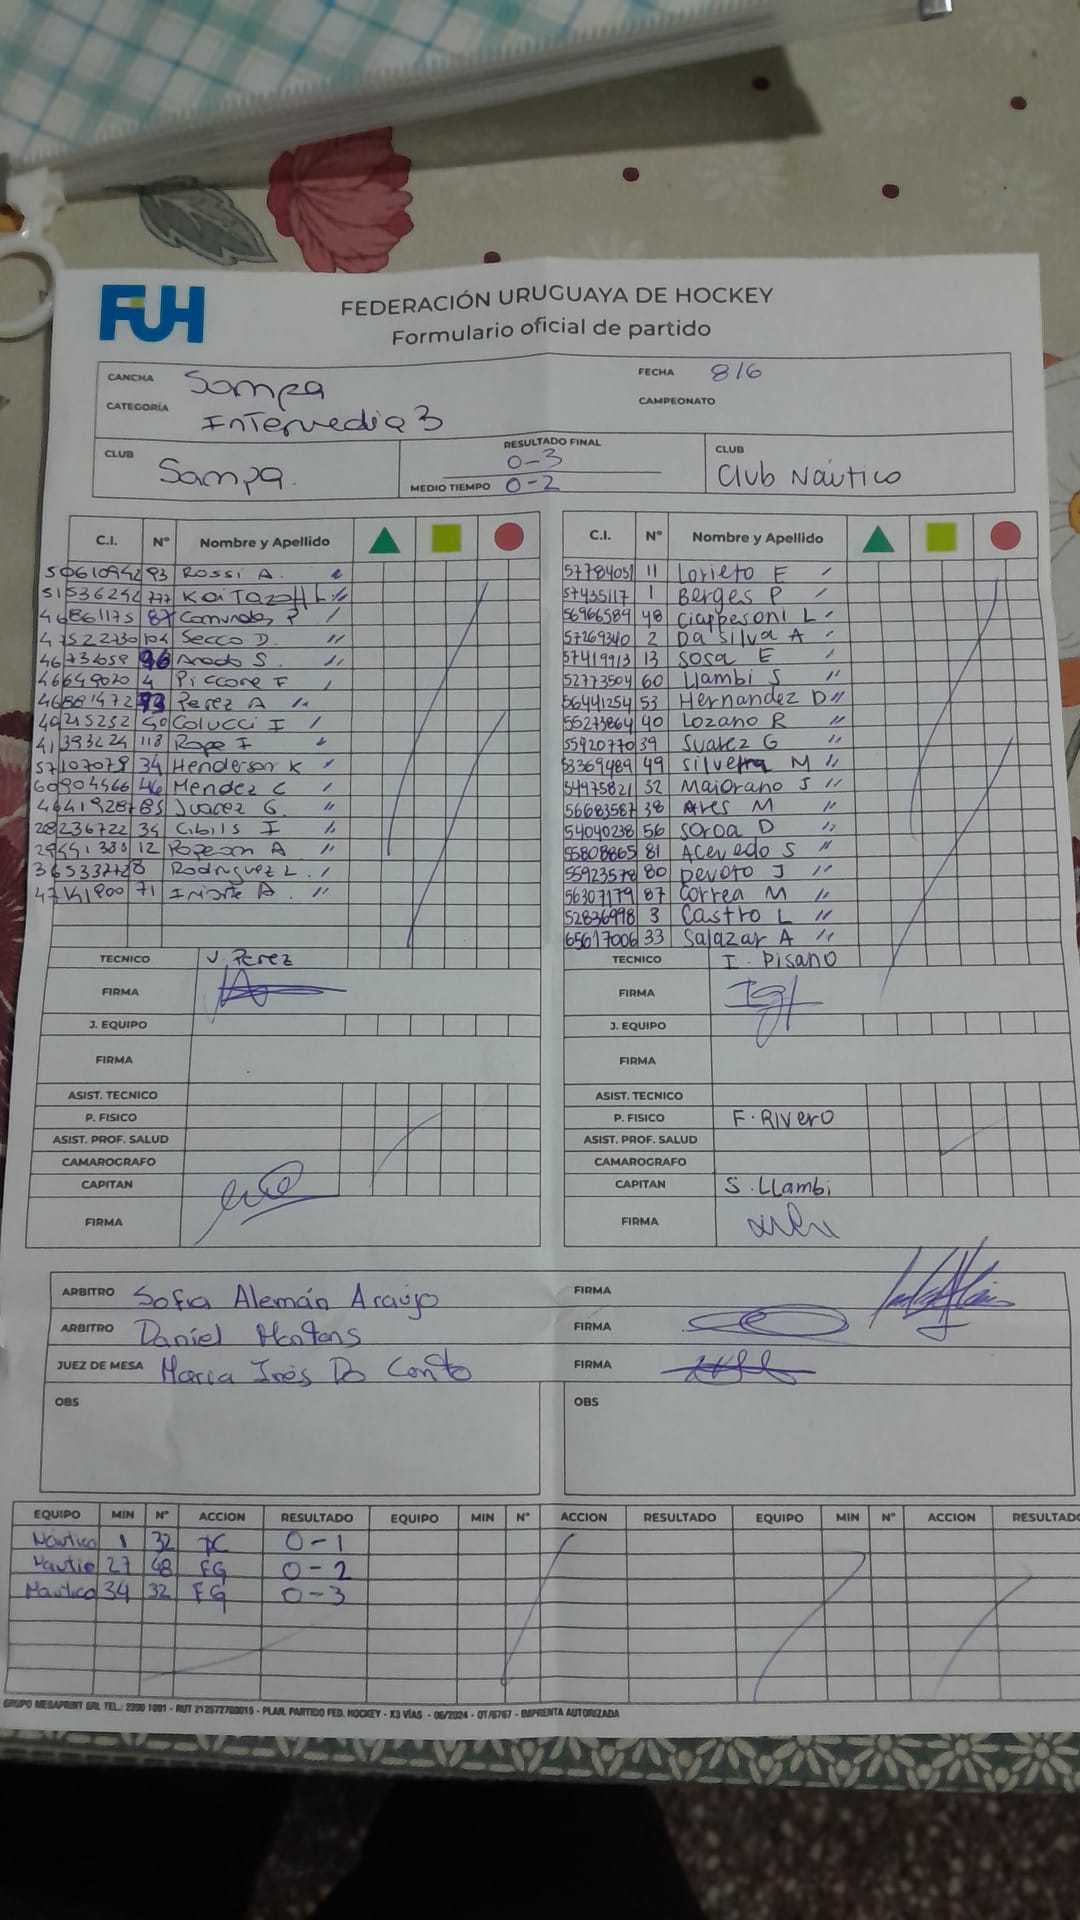 FUH
FEDERACIÓN URUGUAYA DE HOCKEY
Formulario oficial de partido
CANCHA Sampa FECHA 8/6
CATEGORÍA Intermedia 3 CAMPEONATO
CLUB Sampa. RESULTADO FINAL 0-3 CLUB Club Náutico
MEDIO TIEMPO 0-2
C.I. Nº Nombre y Apellido C.I. Nº Nombre y Apellido
50610942 93 Rossi A. 57784051 11 Lorieto E
51536242 777 57435117 1 Berges P
46861175 87 P 56966589 48 Ciappesoni L
47522730 104 Secco D. 57269340 2 Da Silva A
96 S. 57419913 13 Sosa E
46649020 4 Piccone F 52773504 60 Llambi S
46881472 93 Perez A 56441254 53 Hernandez D
40215252 50 Colucci I 55273864 40 Lozano R
118 Rope F 55920770 39 Suarez G
57107079 34 Henderson K 53369489 49 Silveira M
60904566 46 Mendez C 54975821 52 Maiorano S
46419287 85 Juarez G. 56683587 38 Ares M
28236722 34 Cibils I 54040238 56 Soroa D
12 A 55808865 81 Acevedo S
Rodriguez L. 55923578 80 Devoto J
71 56307179 87 Correa M
52836998 3 Castro L
65617006 33 Salazar A
TECNICO V. Perez TECNICO I. Pisano
FIRMA FIRMA
J. EQUIPO J. EQUIPO
FIRMA FIRMA
ASIST. TECNICO ASIST. TECNICO
P. FISICO P. FISICO F. Rivero
ASIST. PROF. SALUD ASIST. PROF. SALUD
CAMAROGRAFO CAMAROGRAFO
CAPITAN CAPITAN S. Llambi
FIRMA FIRMA
ARBITRO Sofia Alemán Araújo FIRMA
ARBITRO Daniel FIRMA
JUEZ DE MESA Maria Inés Do Canto FIRMA
OBS OBS
EQUIPO MIN Nº ACCION RESULTADO EQUIPO MIN Nº ACCION RESULTADO EQUIPO MIN Nº ACCION RESULTADO
Náutico 1 32 0-1
Nautico 27 48 FG 0-2
Nautico 34 32 FG 0-3
GRUPO MEGAPRINT SRL TEL.: 2200 1091 - RUT 212572700015 - PLAN. PARTIDO FED. HOCKEY - X3 VÍAS - 06/2024 - OT/6767 - IMPRENTA AUTORIZADA